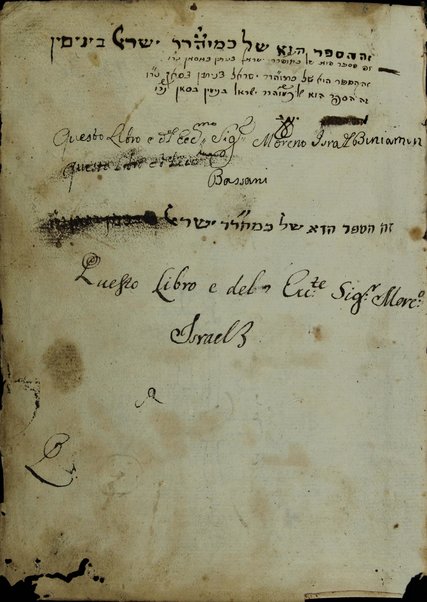 זה הספר הוא של כמוה״רר ישראל בינימין
זה ספר היא של כמוהרר ישראל בנימין באסאן נרו
זה הספר היא של כמוהרר ישראל בנימין באסאן נרו
זה הספר הוא של כמוהרר ישראל בנימין באסאן נרו
Questo Libro e del Ecc.mo Sig.r Moreno Israel Biniamin
Questo Libro e del
Bassani
זה הספר הוא של כמהר״רר ישראל
Questo Libro e del Ecc.te Sig.r More.o
Israel B
Q